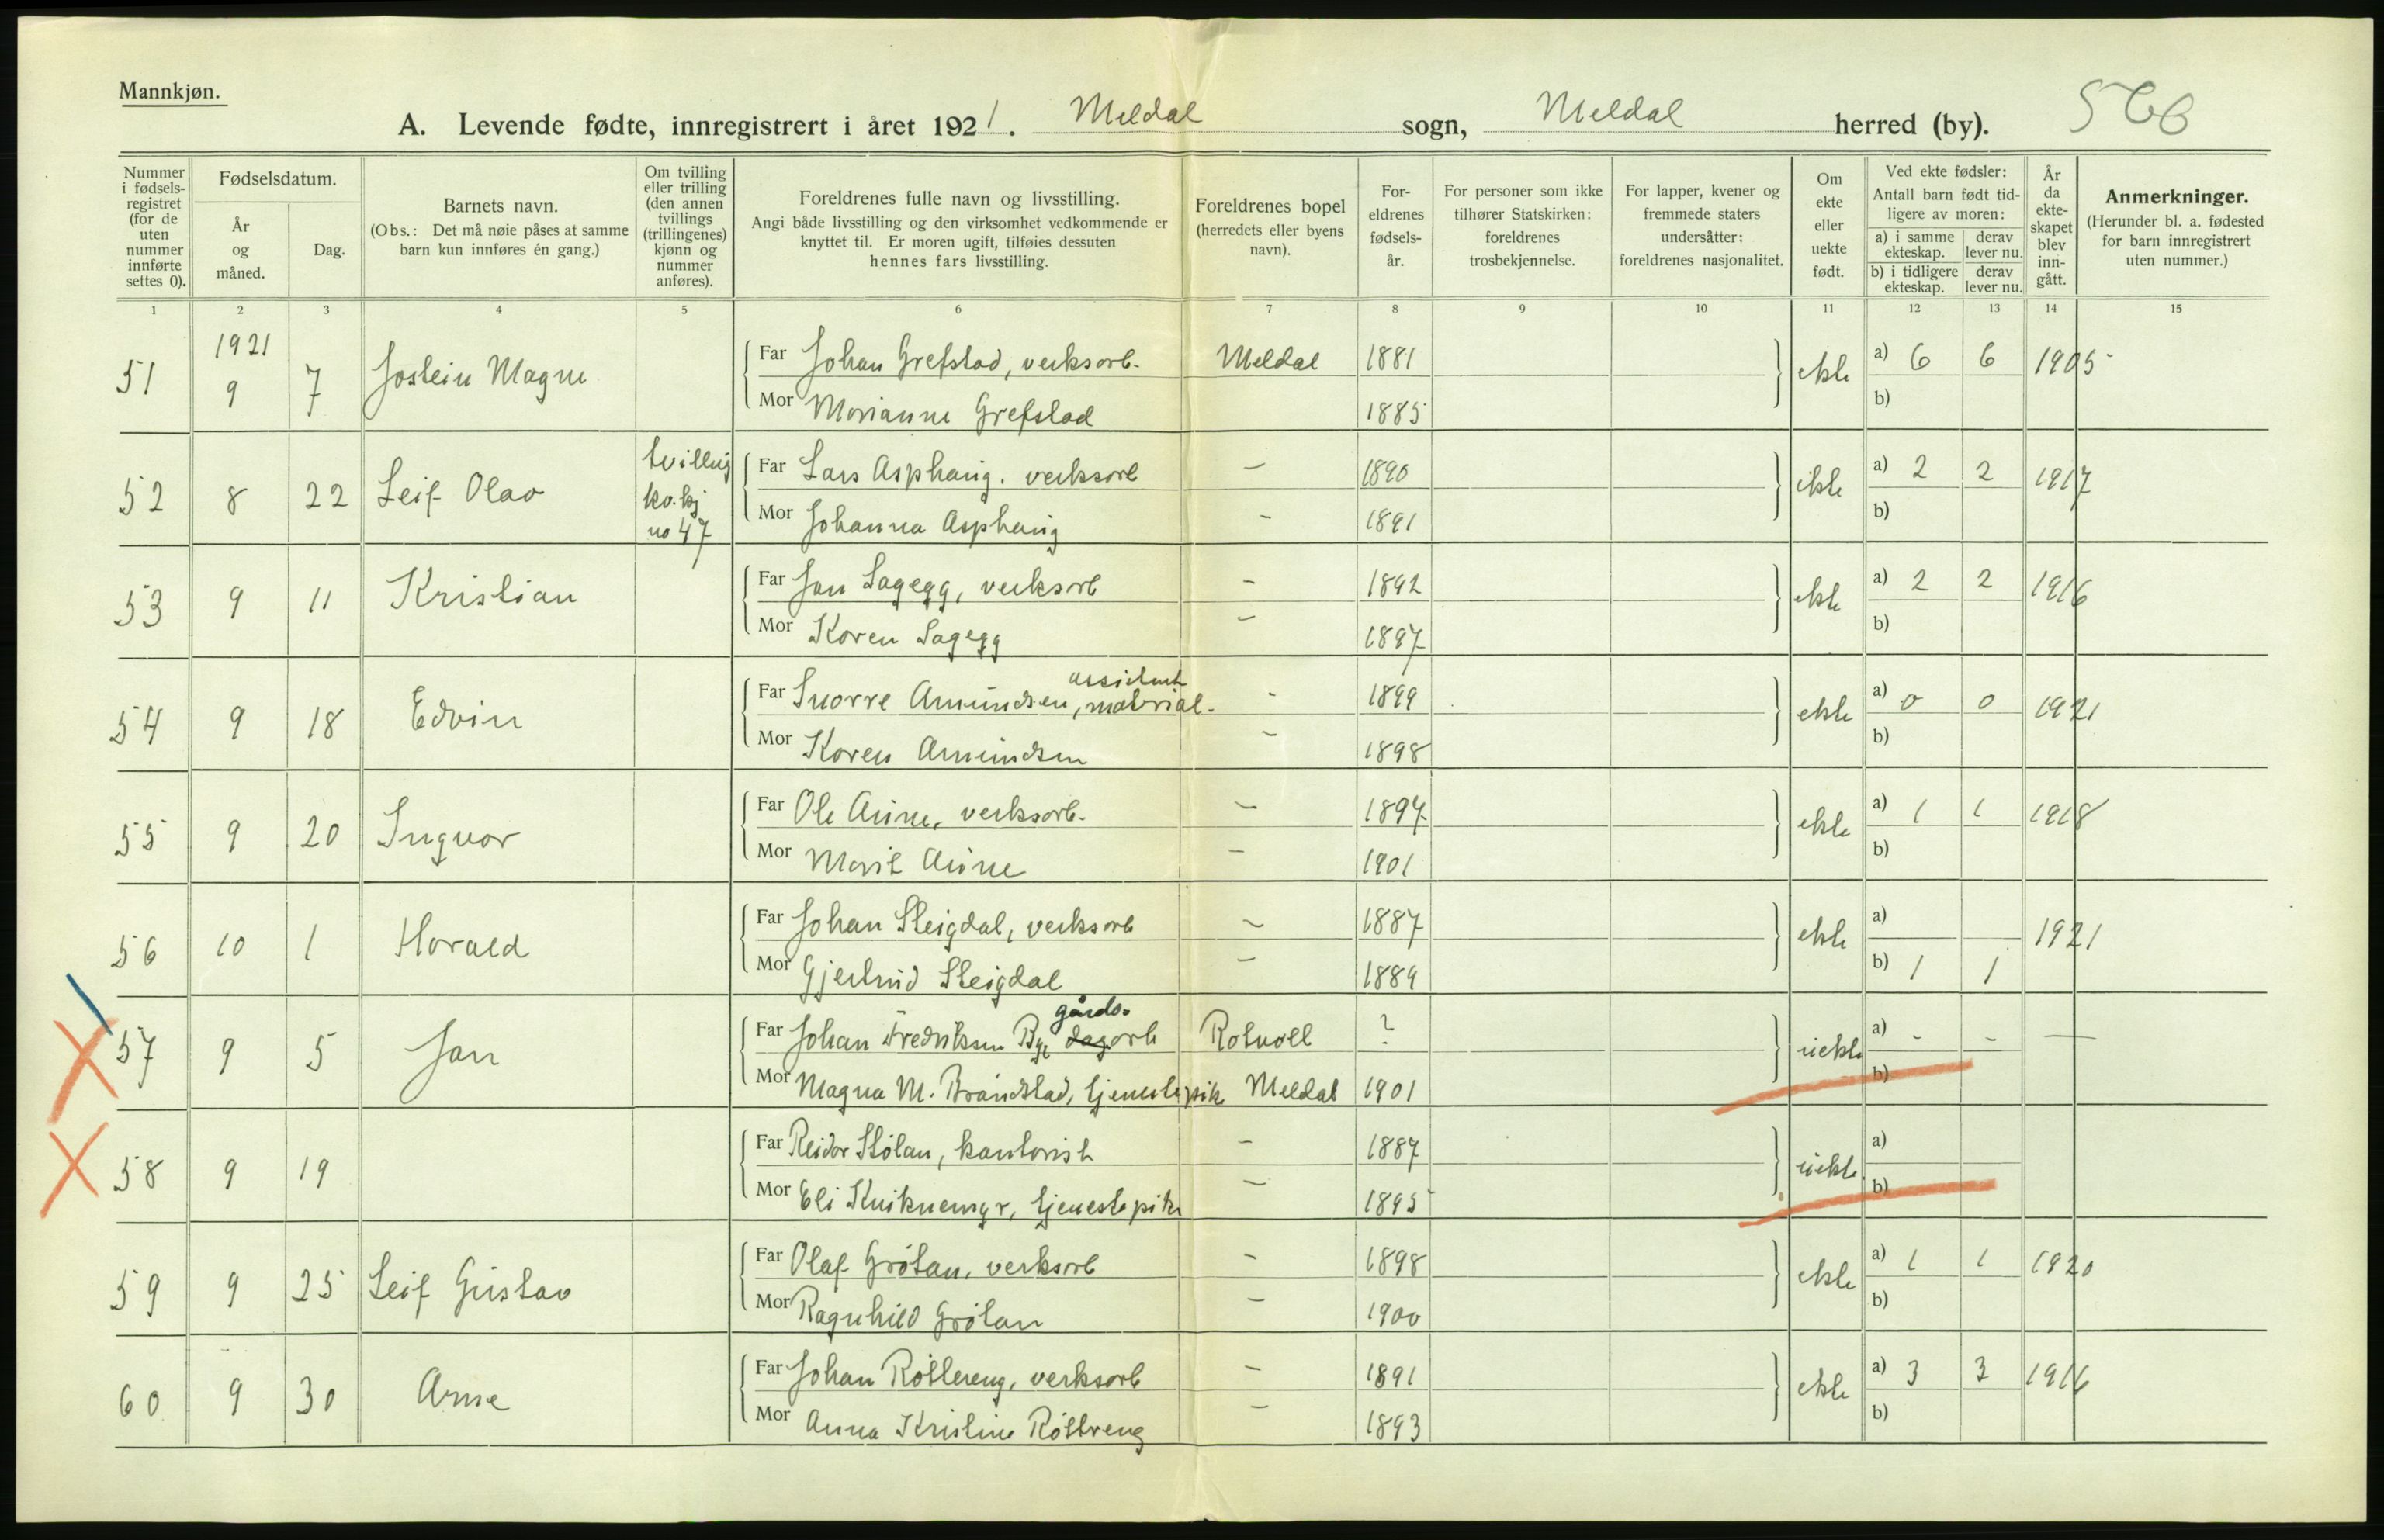 Mannkjøn.
A. Levende fødte, innregistrert i året 1921. Meldal sogn, Meldal herred (by).
Nummer i fødselsregistret (for de uten nummer innførte settes 0).
Fødselsdatum.
År og måned.
Dag.
Barnets navn.
(Obs.: Det må nøie påses at samme barn kun innføres én gang.)
Om tvilling eller trilling (den annen tvillings (trillingenes) kjønn og nummer anføres).
Foreldrenes fulle navn og livsstilling.
Angi både livsstilling og den virksomhet vedkommende er knyttet til. Er moren ugift, tilføies dessuten hennes fars livsstilling.
Foreldrenes bopel (herredets eller byens navn).
Foreldrenes fødselsår.
For personer som ikke tilhører Statskirken: foreldrenes trosbekjennelse.
For lapper, kvener og fremmede staters undersåtter: foreldrenes nasjonalitet.
Om ekte eller uekte født.
Ved ekte fødsler:
Antall barn født tidligere av moren:
a) i samme ekteskap. derav lever nu.
b) i tidligere ekteskap. derav lever nu.
År da ekteskapet blev inngått.
Anmerkninger.
(Herunder bl. a. fødested for barn innregistrert uten nummer.)
1 2 3 4 5 6 7 8 9 10 11 12 13 14 15
51 1921 9 7 Jostein Magne Far Johan Grefstad, verksarb. Meldal 1881 ekte a) 6 6 1905
Mor Marianne Grefstad 1885 b)
52 8 22 Leif Olav tvilling kv.kj no 47 Far Lars Asphaug. verksarb – 1890 ekte a) 2 2 1917
Mor Johanna Asphaug – 1891 b)
53 9 11 Kristian Far Jan Sagegg, verksarb – 1892 ekte a) 2 2 1916
Mor Karen Sagegg – 1897 b)
54 9 18 Edvin Far Snorre Amundsen, material. assistent – 1899 ekte a) 0 0 1921
Mor Karen Amundsen – 1898 b)
55 9 20 Ingvar Far Ole Aune, verksarb. – 1897 ekte a) 1 1 1918
Mor Marit Aune – 1901 b)
56 10 1 Harald Far Johan Steigdal, verksarb – 1887 ekte a) 1921
Mor Gjertrud Steigdal – 1889 b) 1 1
57 9 5 Jan Far Johan Fredriksen Bye dagarb gårds. Rotvoll ? uekte a) - - —
Mor Magna M. Brandstad, tjenestepike Meldal 1901 b)
58 9 19 Far Reidar Stølan, kontorist – 1887 uekte a)
Mor Eli tjenestepike – 1895 b)
59 9 25 Leif Gustav Far Olaf Grøtan, verksarb – 1898 ekte a) 1 1 1920
Mor Ragnhild Grøtan – 1900 b)
60 9 30 Arne Far Johan Røttereng, verksarb – 1891 ekte a) 3 3 1916
Mor Anna Kristine Røttreng – 1893 b)